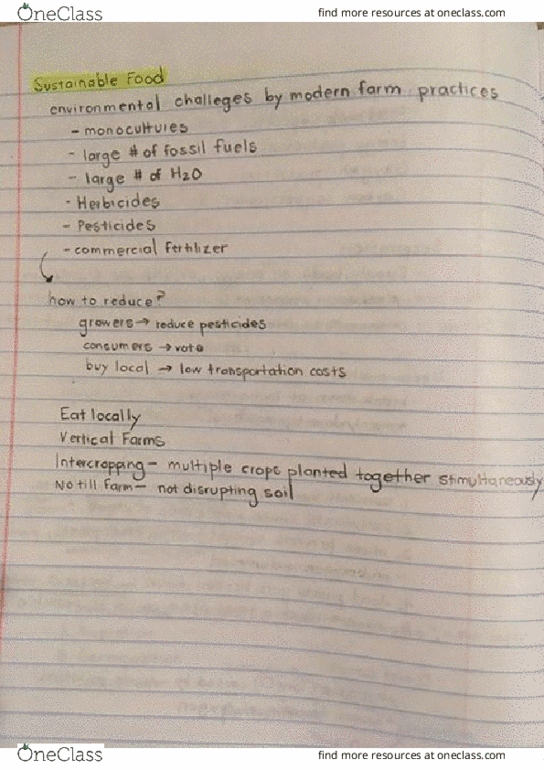 OneClass find more resources at oneclass.com
Sustainable Food
environmental challeges by modern farm practices
- monocultures
- large # of fossil fuels
- large # of H2O
- Herbicides
- Pesticides
- commercial fertilizer
how to reduce?
growers → reduce pesticides
consumers → vote
buy local → low transportation costs
Eat locally
Vertical Farms
Intercropping - multiple crops planted together stimultaneously
No till Farm - not disrupting soil
OneClass find more resources at oneclass.com